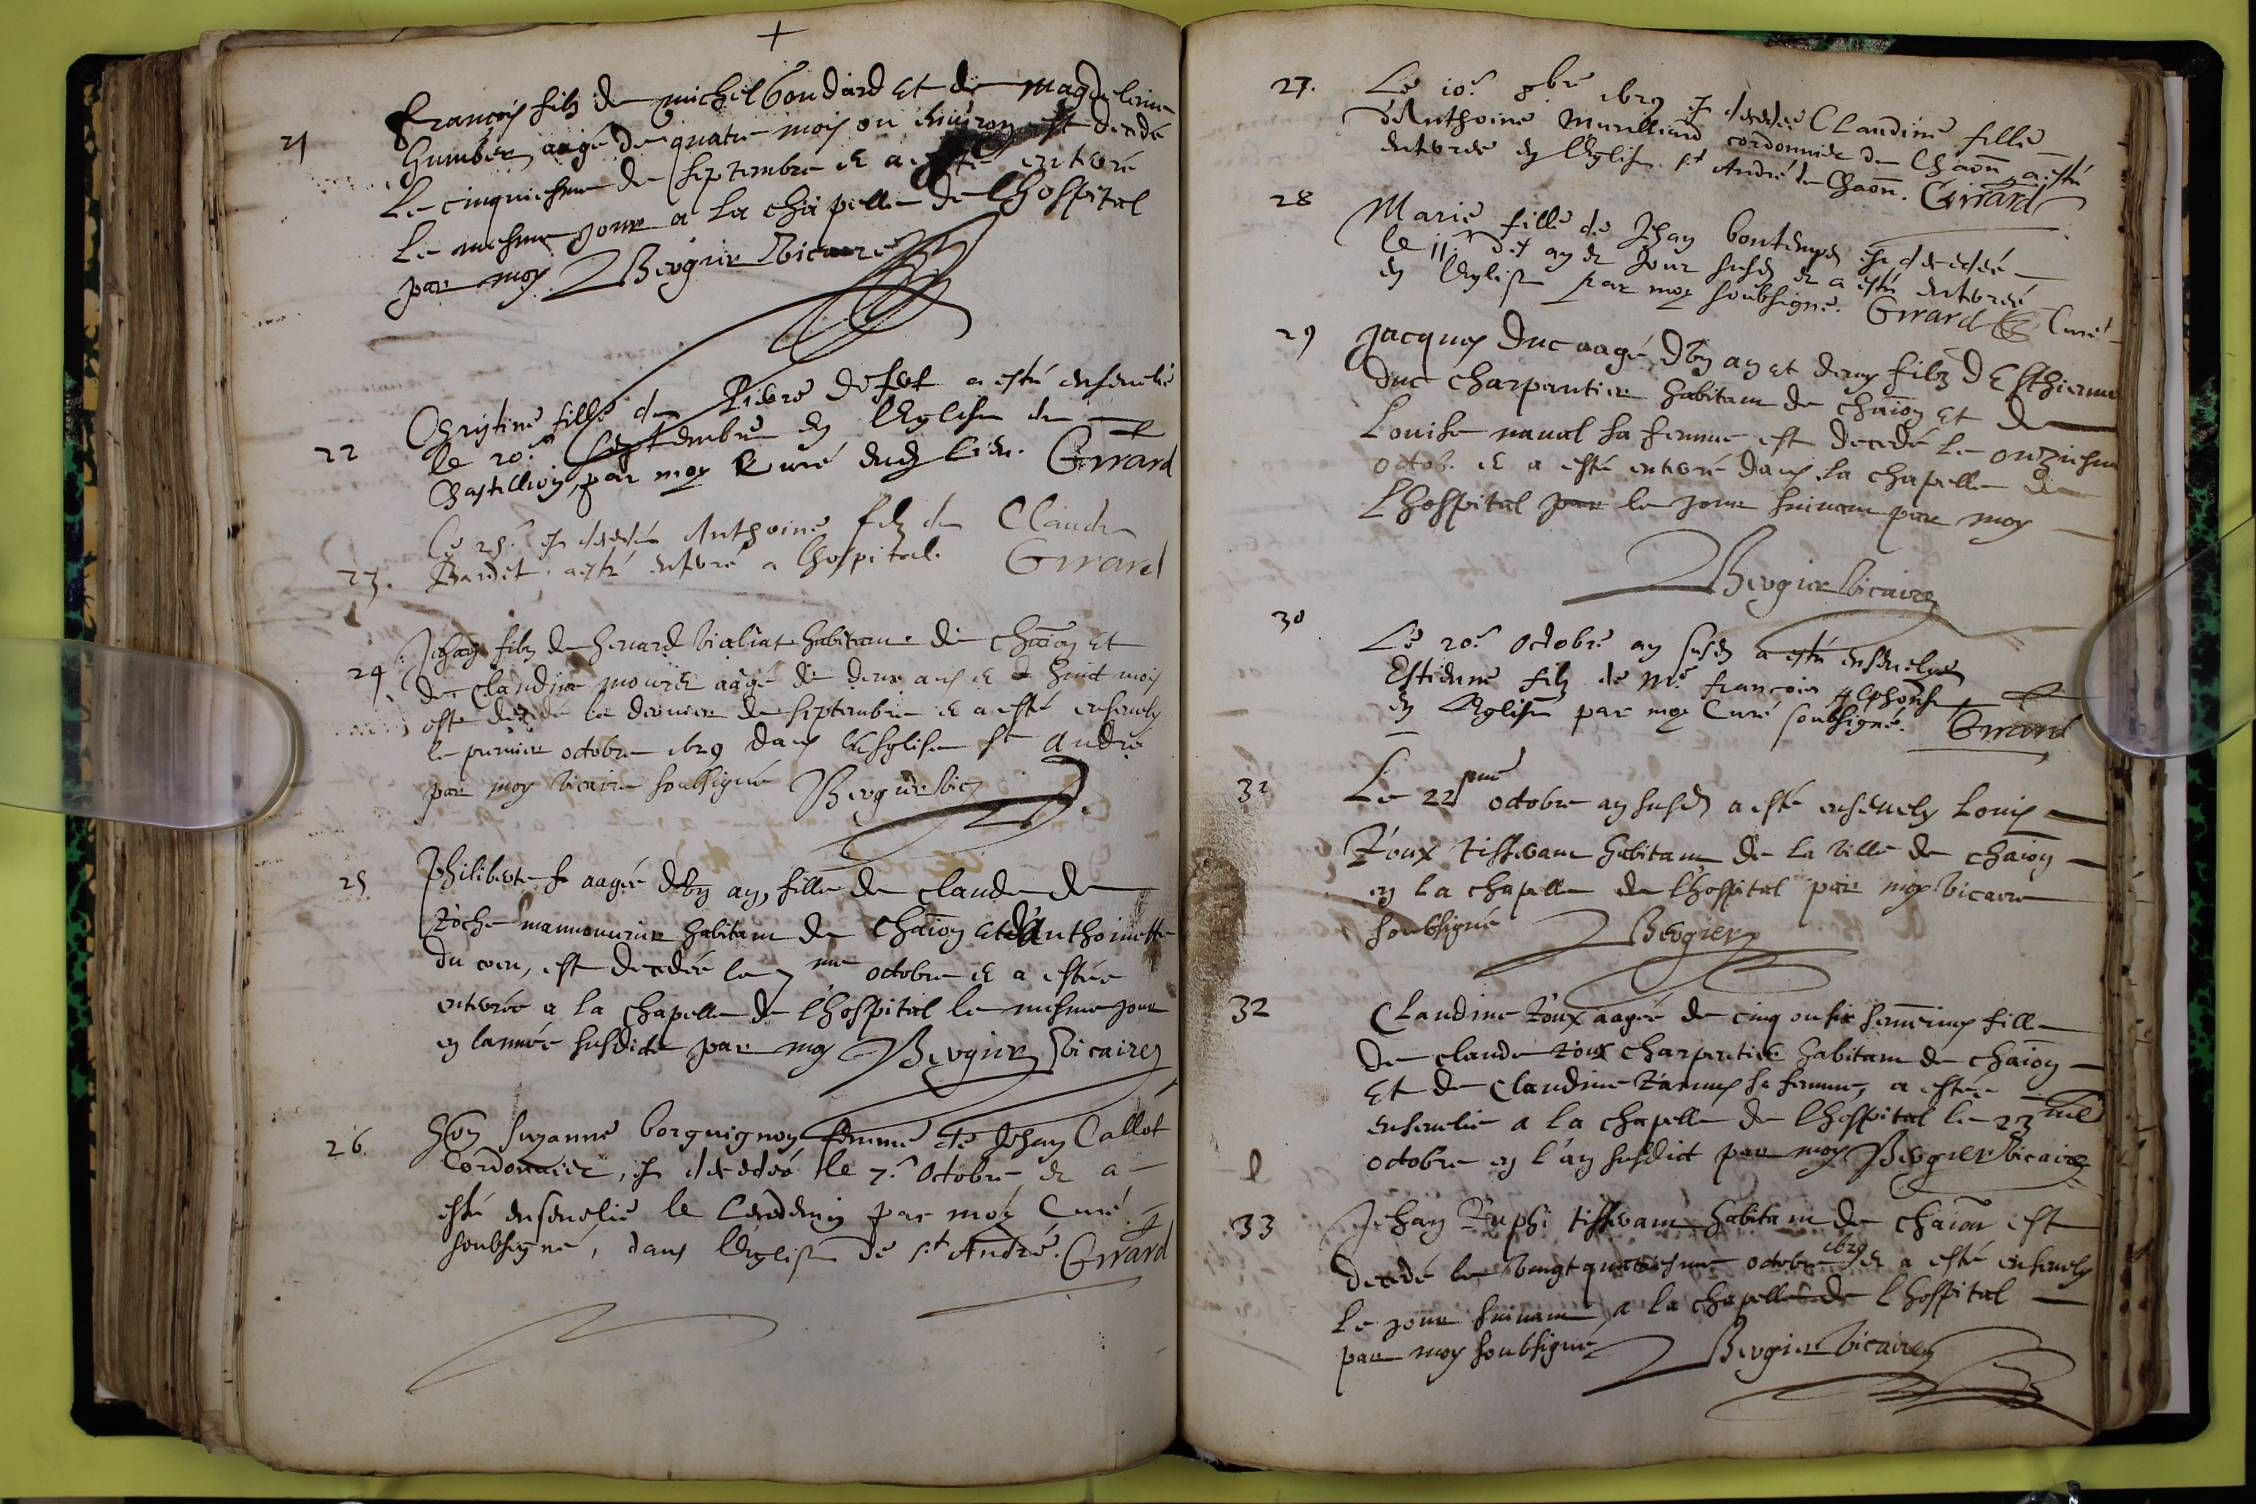 21
françois filz de michel goudard et de magdeleine
humber, aagé de quatre mois ou environ est decedé
le cinquiesme de septembre & a esté enterré
le mesme jour a la chapelle de lhospital
par moy Bergier vicaire
22
Christine fille de Pierre a esté ensevelie
le 20e septembre en l'Eglise de
Chastillion, par moy Curé dud lieu. Girard
23.
Le 25e est decedé Anthoine filz de Claude
Bardet, a esté enterré a lhospital. Girard
24
Jehan filz de henard vialat habitant de chaion et
de claudine aagé de deux ans & huict mois
est decedé le dernier de septembre & a esté ensevely
le premier octobre 1629 dans l'esglise st André
par moy vicaire soubsigné Bergier vic
25
Philiberte aagée d'ung an, fille de claude de
roche mannouvrier habitant de chaion et d'Anthoinette
du, est decedée le 7me octobre & a estée
enterrée a la chapelle de l'hospital le mesme jour
en l'année susdicte par moy Bergier vicaire
26.
hon suzanne borguignon femme de Jehan Callot
Cordonnier, est decedée le 7e Octobre, & a
esté ensevelie le lendemin par moy Curé
soubsigné, dans l'Eglise de st André. Girard
27.
Le 10e 8bre 1629 est decedée Claudine fille
d'Anthoine cordonnier de Chaon, a esté
enterrée en l'Eglise st André de Chaon. Girard
28
Marie fille de Jehan bontemps est decedée
le 11e des an & jour susd & a esté enterrée
en l'Eglise par moy soubsigné. Girard Curé
29
Jacques duc aagé d'ung an et demy filz d'Esthienne
duc charpentier habitant de chaion et de
Louise naval sa femme est decedé le onziesme
octob. & a esté enterré dans la chapelle de
l'hospital par le jour suivant par moy
Bergier vicaire
30
Le 20e Octobre an susd a esté ensevely
Estienne filz de Me françois Alphonse
en l'Eglise par moy Curé soubsigné. Girard
31
Le 22sme octobre an susd a esté ensevely Louis
roux tisserant habitant de la ville de chaion
en la chapelle de l'hospital par moy vicaire
soubsigné Bergier
32
Claudine roux aagée de cinq ou six semeines fille
de claude roux charpentier habitant de chaion
et de claudine sa femme, a estée
ensevelie a la chapelle de l'hospital le 23me
octobre en l'an susdict par moy Bergier vicaire
33
Jehan Ruphi tisserant habitant de chaion est
decedé le vingt quatriesme octobre 1629 & a esté ensevely
le jour suivant a la chapelle de l'hospital
par moy soubsigné Bergier vicaire